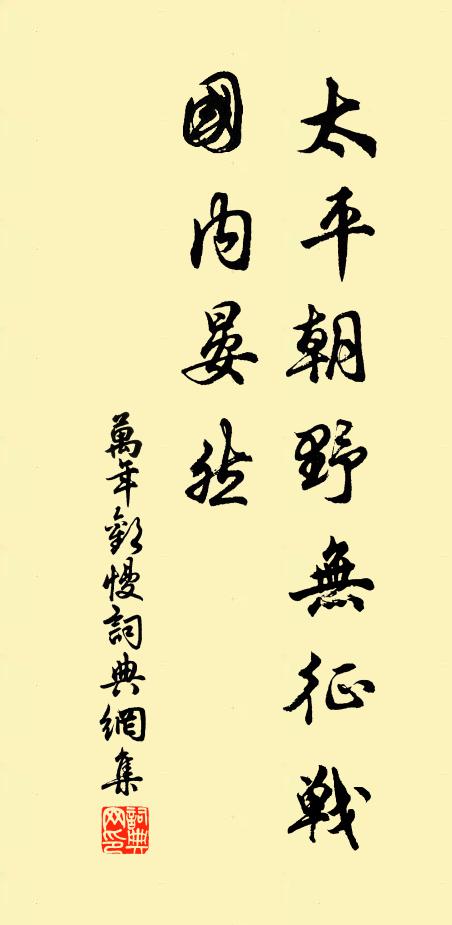 太平朝野無征戦
國内晏然
萬年歡慢詞典網集
詞典网印